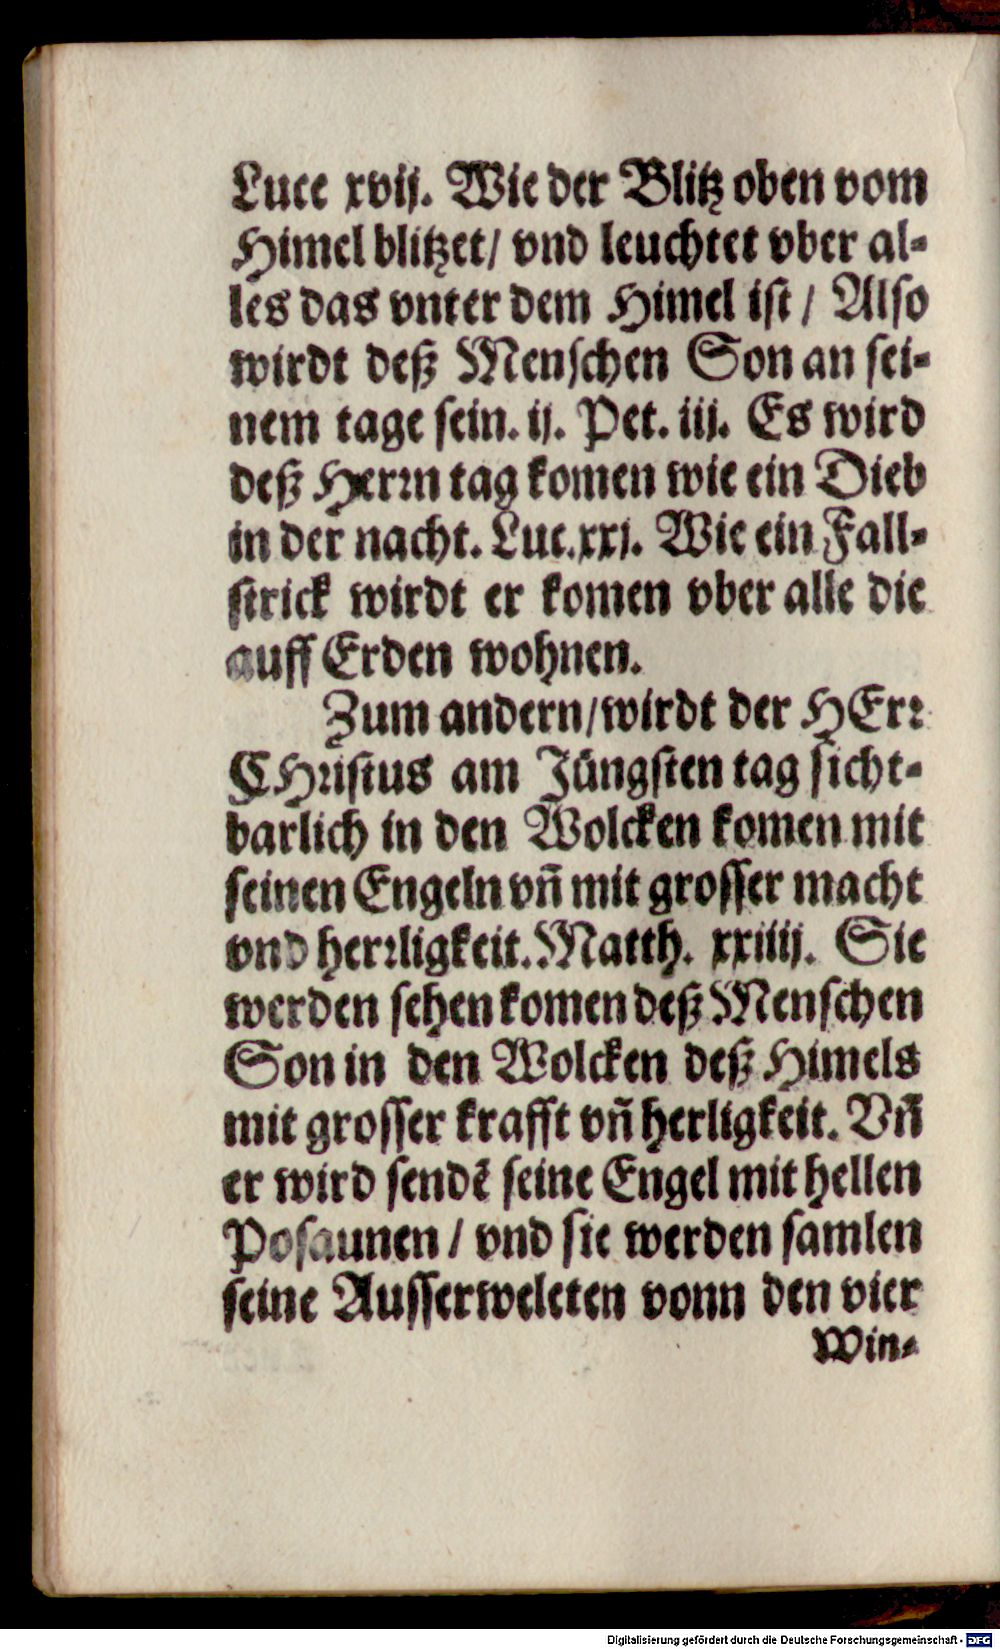 Luce xvij. Wie der Blitz oben vom
Himel blitzet/ vnd leuchtet vber al-
les das vnter dem Himel ist / Also
wirdt deß Menschen Son an sei-
nem tage sein. ij. Pet. iij. Es wird
deß Herrn tag komen wie ein Dieb
in der nacht. Luc. xxj. Wie ein Fall-
strick wirdt er komen vber alle die
auff Erden wohnen.
Zum andern/wirdt der HErr
CHristus am Jüngsten tag sicht-
barlich in den Wolcken komen mit
seinen Engeln vñ mit grosser macht
vnd herrligkeit. Matth. xxiiij. Sie
werden sehen komen deß Menschen
Son in den Wolcken deß Himels
mit grosser krafft vñ herligkeit. Vñ
er wird sendē seine Engel mit hellen
Posaunen / vnd sie werden samlen
seine Ausserweleten vonn den vier
Win-
Digitalisierung gefördert durch die Deutsche Forschungsgemeinschaft - DFG